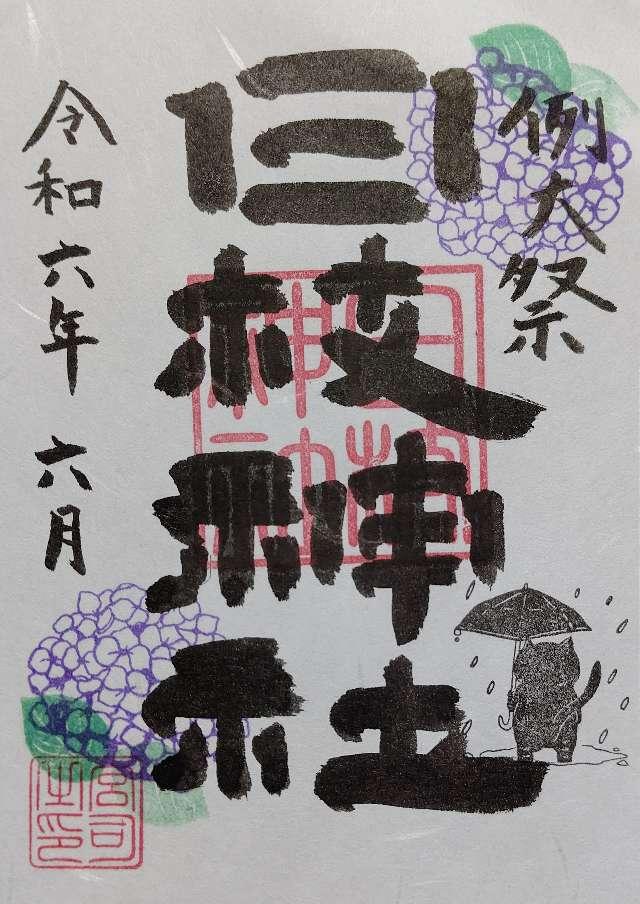 例大祭
日枝神社
令和六年 六月